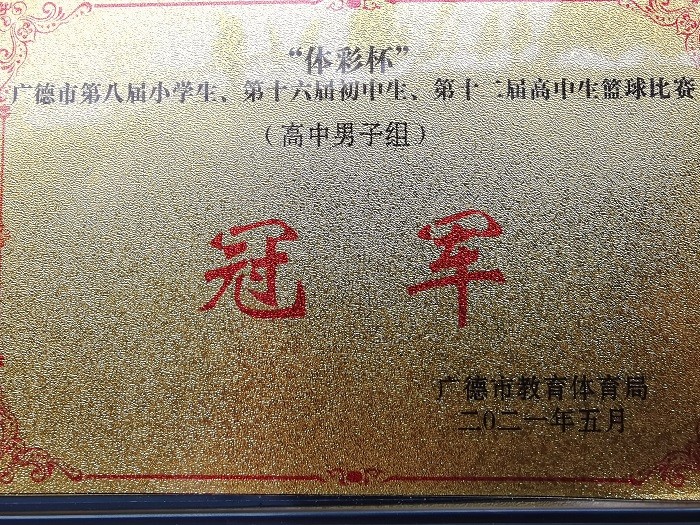 “体彩杯”
广德市第八届小学生、第十六届初中生、第十二届高中生篮球比赛
（高中男子组）
冠军
广德市教育体育局
二0二一年五月